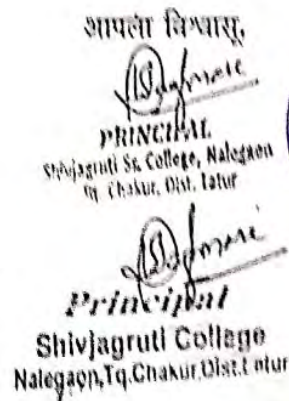 आपला विश्वासू,
PRINCIPAL
Shivjagruti Sr. College, Nalegaon
Tq. Chakur, Dist. Latur
Principal
Shivjagruti College
Nalegaon,Tq.Chakur,Dist.Latur